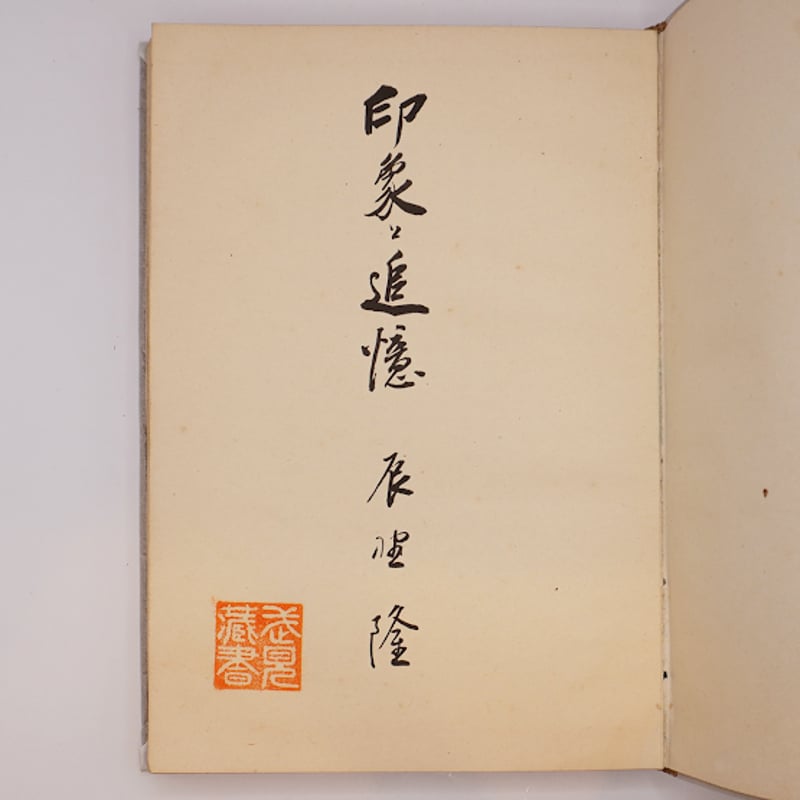 印象と追憶 辰野隆
藏書